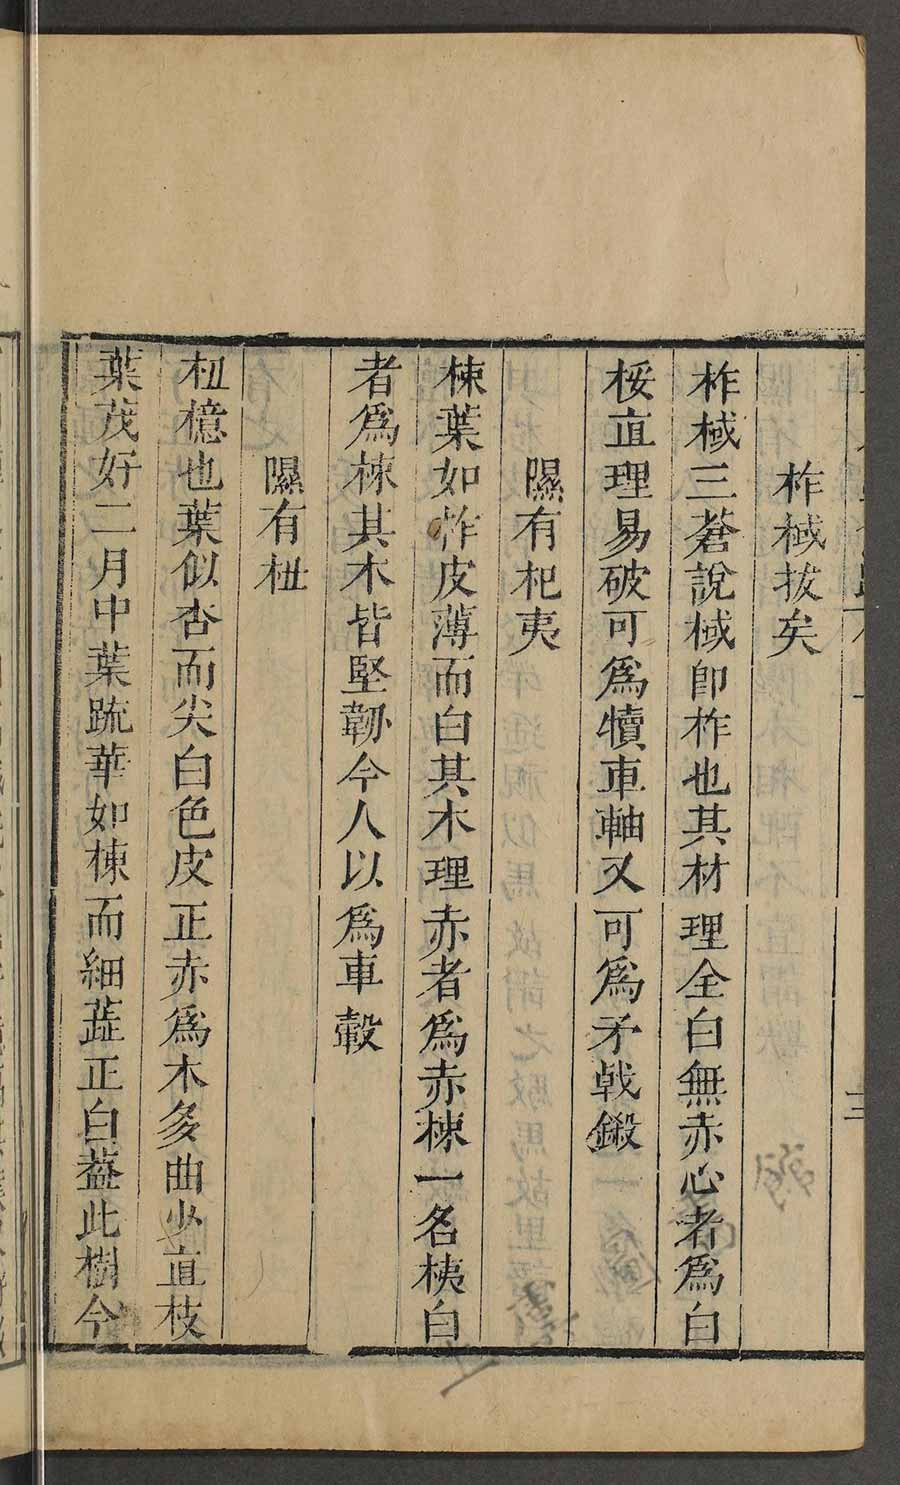 柞棫拔矣
柞棫三蒼說棫卽柞也其材理全白無赤心者爲白
桵直理易破可爲犢車軸又可爲矛戟鍛
隰有杞夷
棟葉如柞皮薄而白其木理赤者爲赤棟一名桋白
者爲棟其木皆堅韌今人以爲車轂
隰有杻
杻檍也葉似杏而尖白色皮正赤爲木多曲少直枝
葉茂好二月中葉疏華如棟而細蕋正白葢此樹今